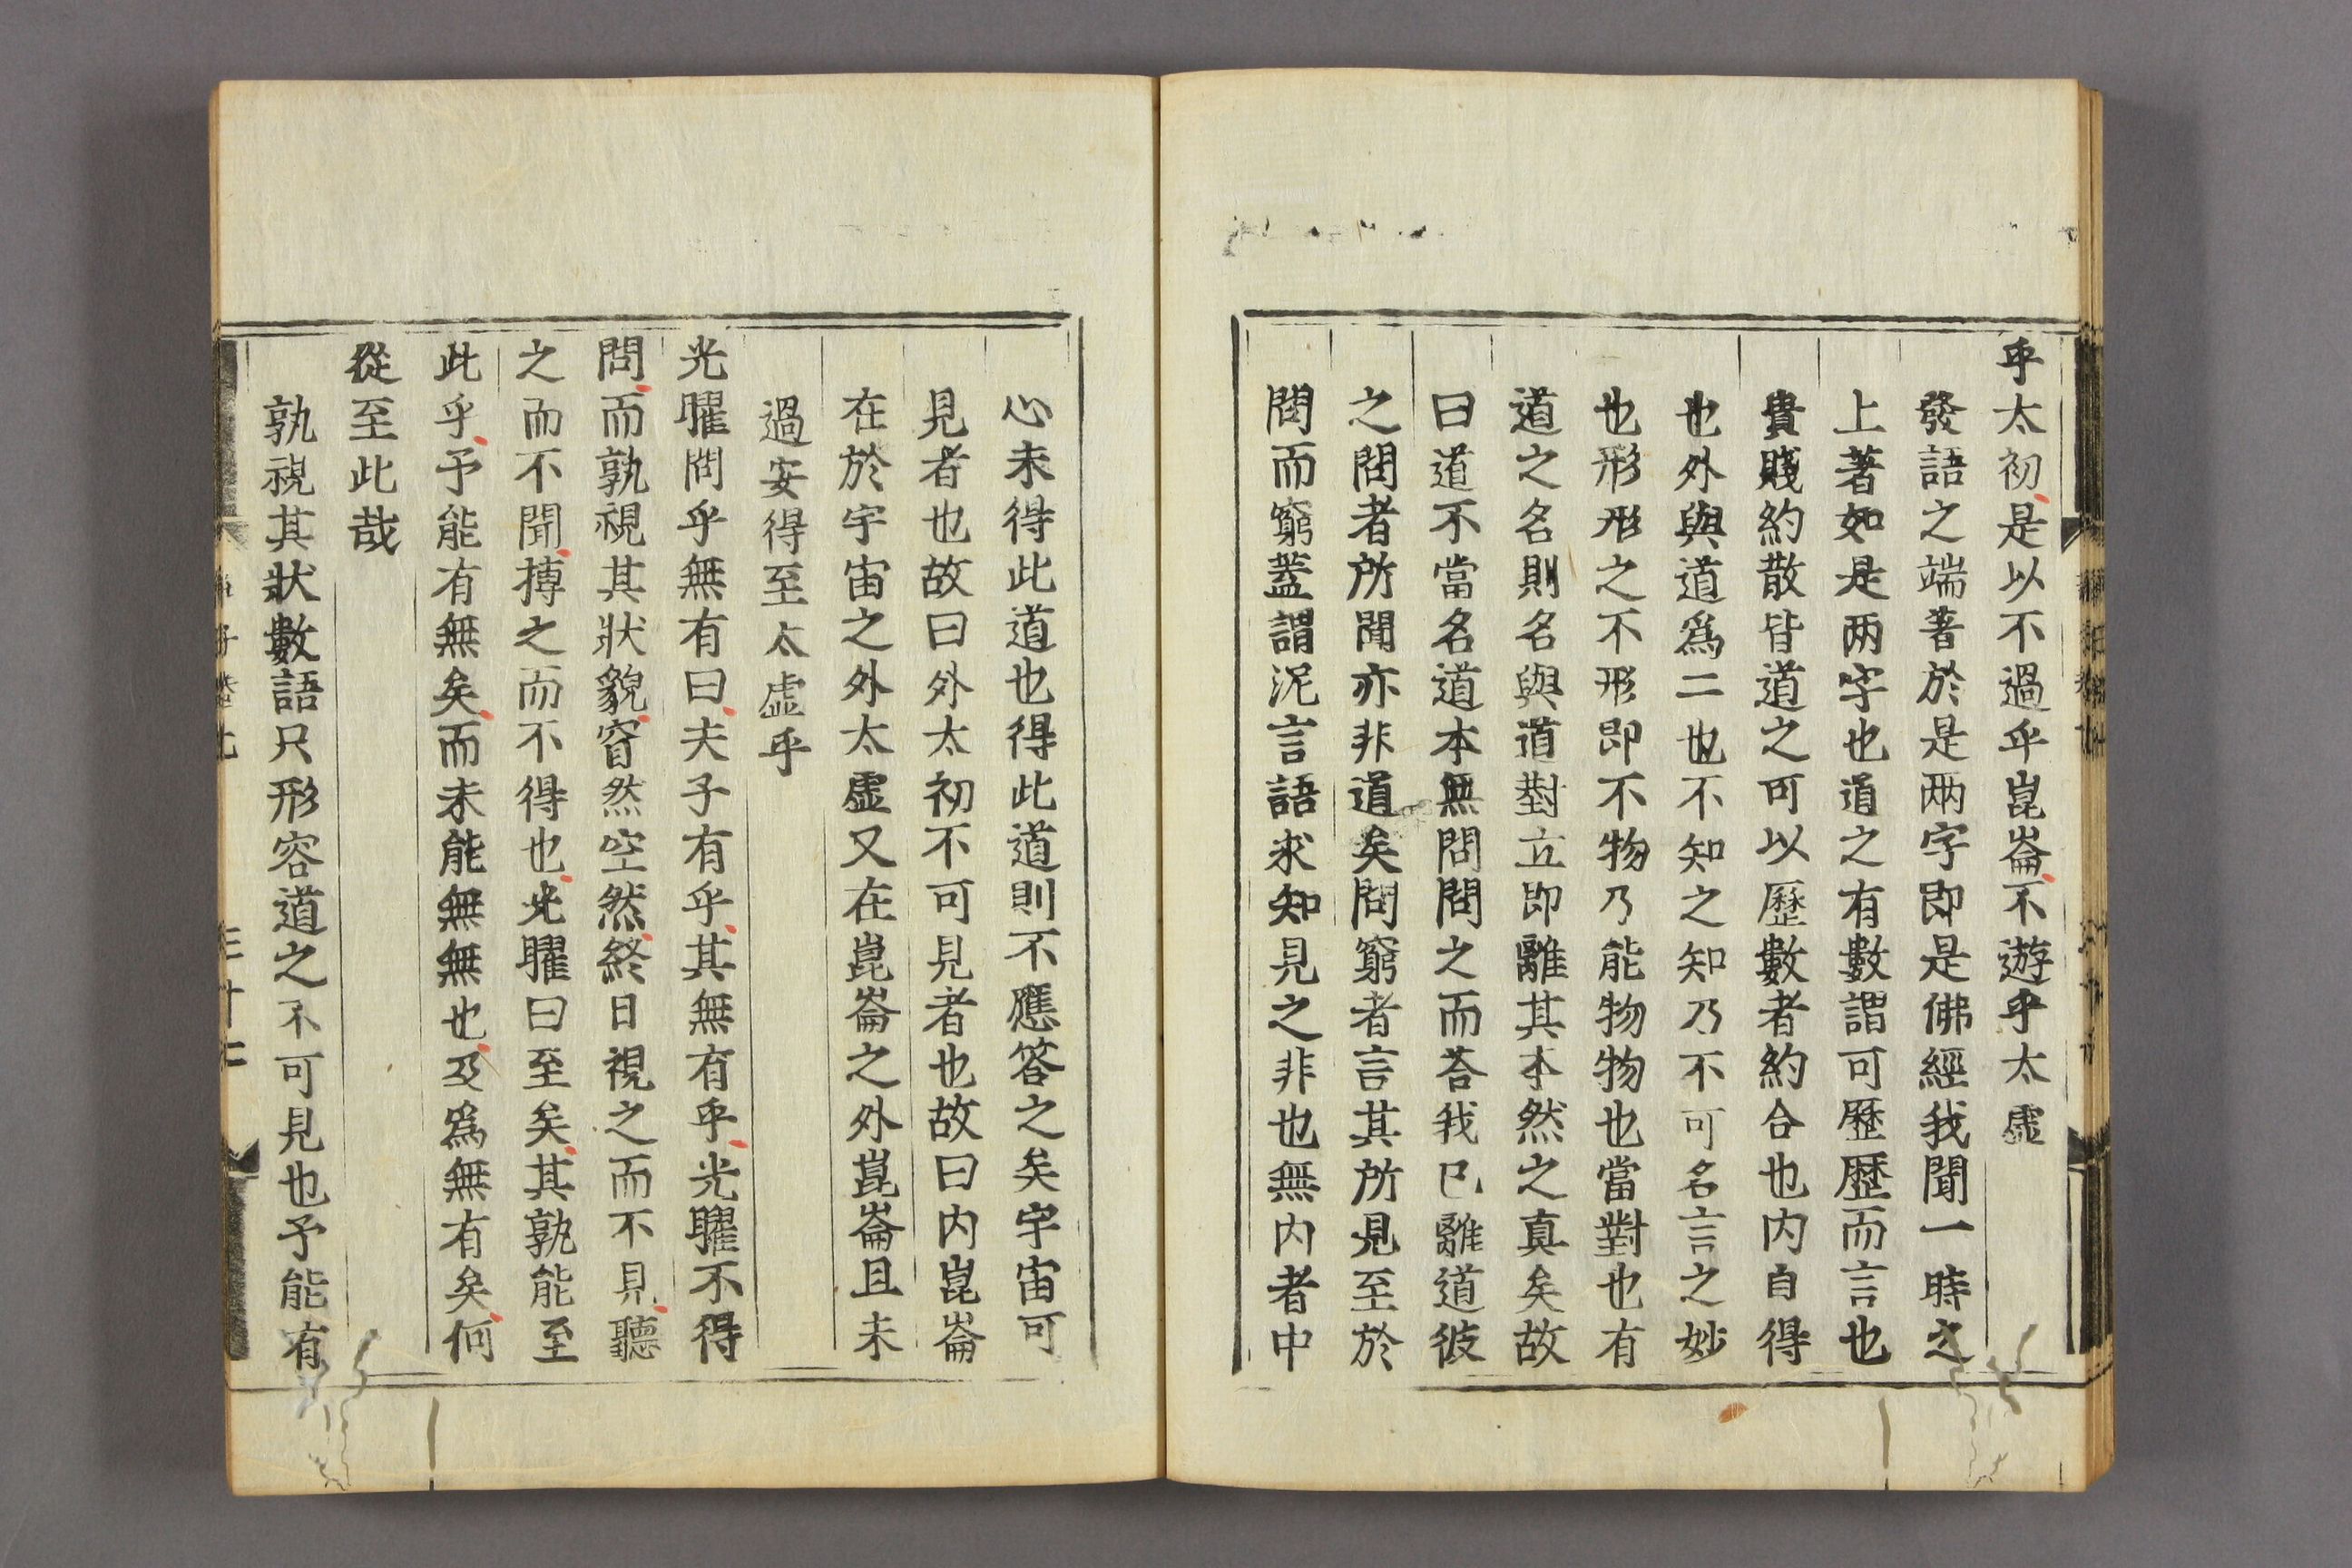 乎太初是以不過乎崑崙不遊乎太虛
發語之端著於是兩字即是佛經我聞一時之
上著如是兩字也道之有數謂可歷歷而言也
貴賤約散皆道之可以歷數者約合也内自得
也外與道爲二也不知之知乃不可名言之妙
也形形之不形即不物乃能物物也當對也有
道之名則名與道對立即離其本然之真矣故
曰道不當名道本無問問之而荅我已離道彼
之問者所聞亦非道矣問窮者言其所見至於
問而窮蓋謂泥言語求知見之非也無内者中
心未得此道也得此道則不應答之矣宇宙可
見者也故曰外太初不可見者也故曰内崑崙
在於宇宙之外太虛又在崑崙之外崑崙且未
過安得至太虛乎
光曜問乎無有曰夫子有乎其無有乎光曜不得
問而孰視其狀貌窅然空然終日視之而不見聽
之而不聞搏之而不得也光曜曰至矣其孰能至
此乎予能有無矣而未能無無也及爲無有矣何
從至此哉
孰視其狀數語只形容道之不可見也予能有